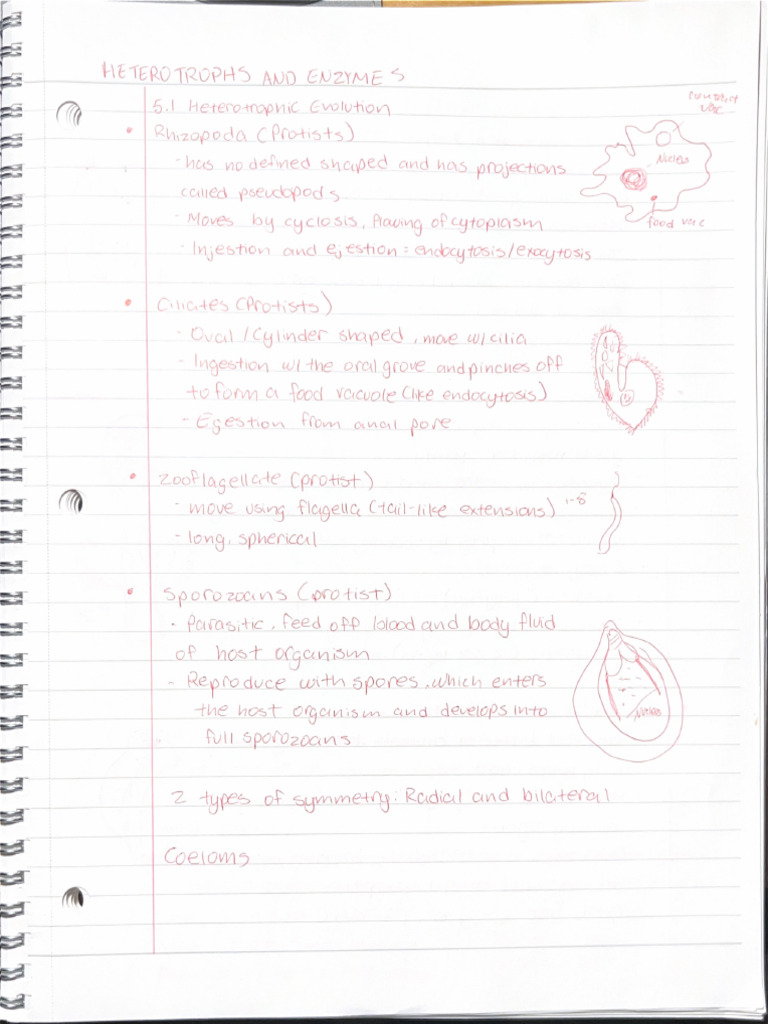 HETEROTROPHS AND ENZYMES
5.1 Heterotrophic Evolution
contract vac
• Rhizopoda (Protists)
- has no defined shaped and has projections
Nucleus
called pseudopods
- Moves by cyclosis, flowing of cytoplasm
food vac
- Injestion and ejestion = endocytosis/exocytosis
• Ciliates (Protists)
- Oval / Cylinder shaped, move w/ cilia
- Ingestion w/ the oral grove and pinches off
to form a food vacuole (like endocytosis)
- Egestion from anal pore
• Zooflagellate (protist)
- move using flagella (tail-like extensions) 1-8
- long, spherical
• Sporozoans (protist)
- Parasitic, feed off blood and body fluid
of host organism
- Reproduce with spores, which enters
the host organism and develops into
Nucleus
full sporozoans
2 types of symmetry: Radial and bilateral
Coeloms